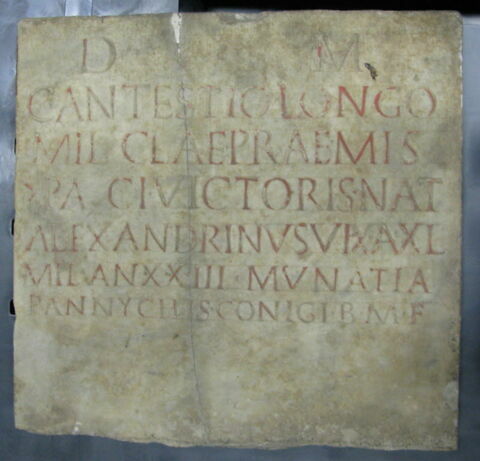 D M
C ANTESTIO LONGO
MIL CL AE PRAE MIS
XPA CI VICTORIS NAT
ALEXANDRINVS VIX A XL
MIL AN XXIII MVNATIA
PANNYCHIS CONIGI B M F